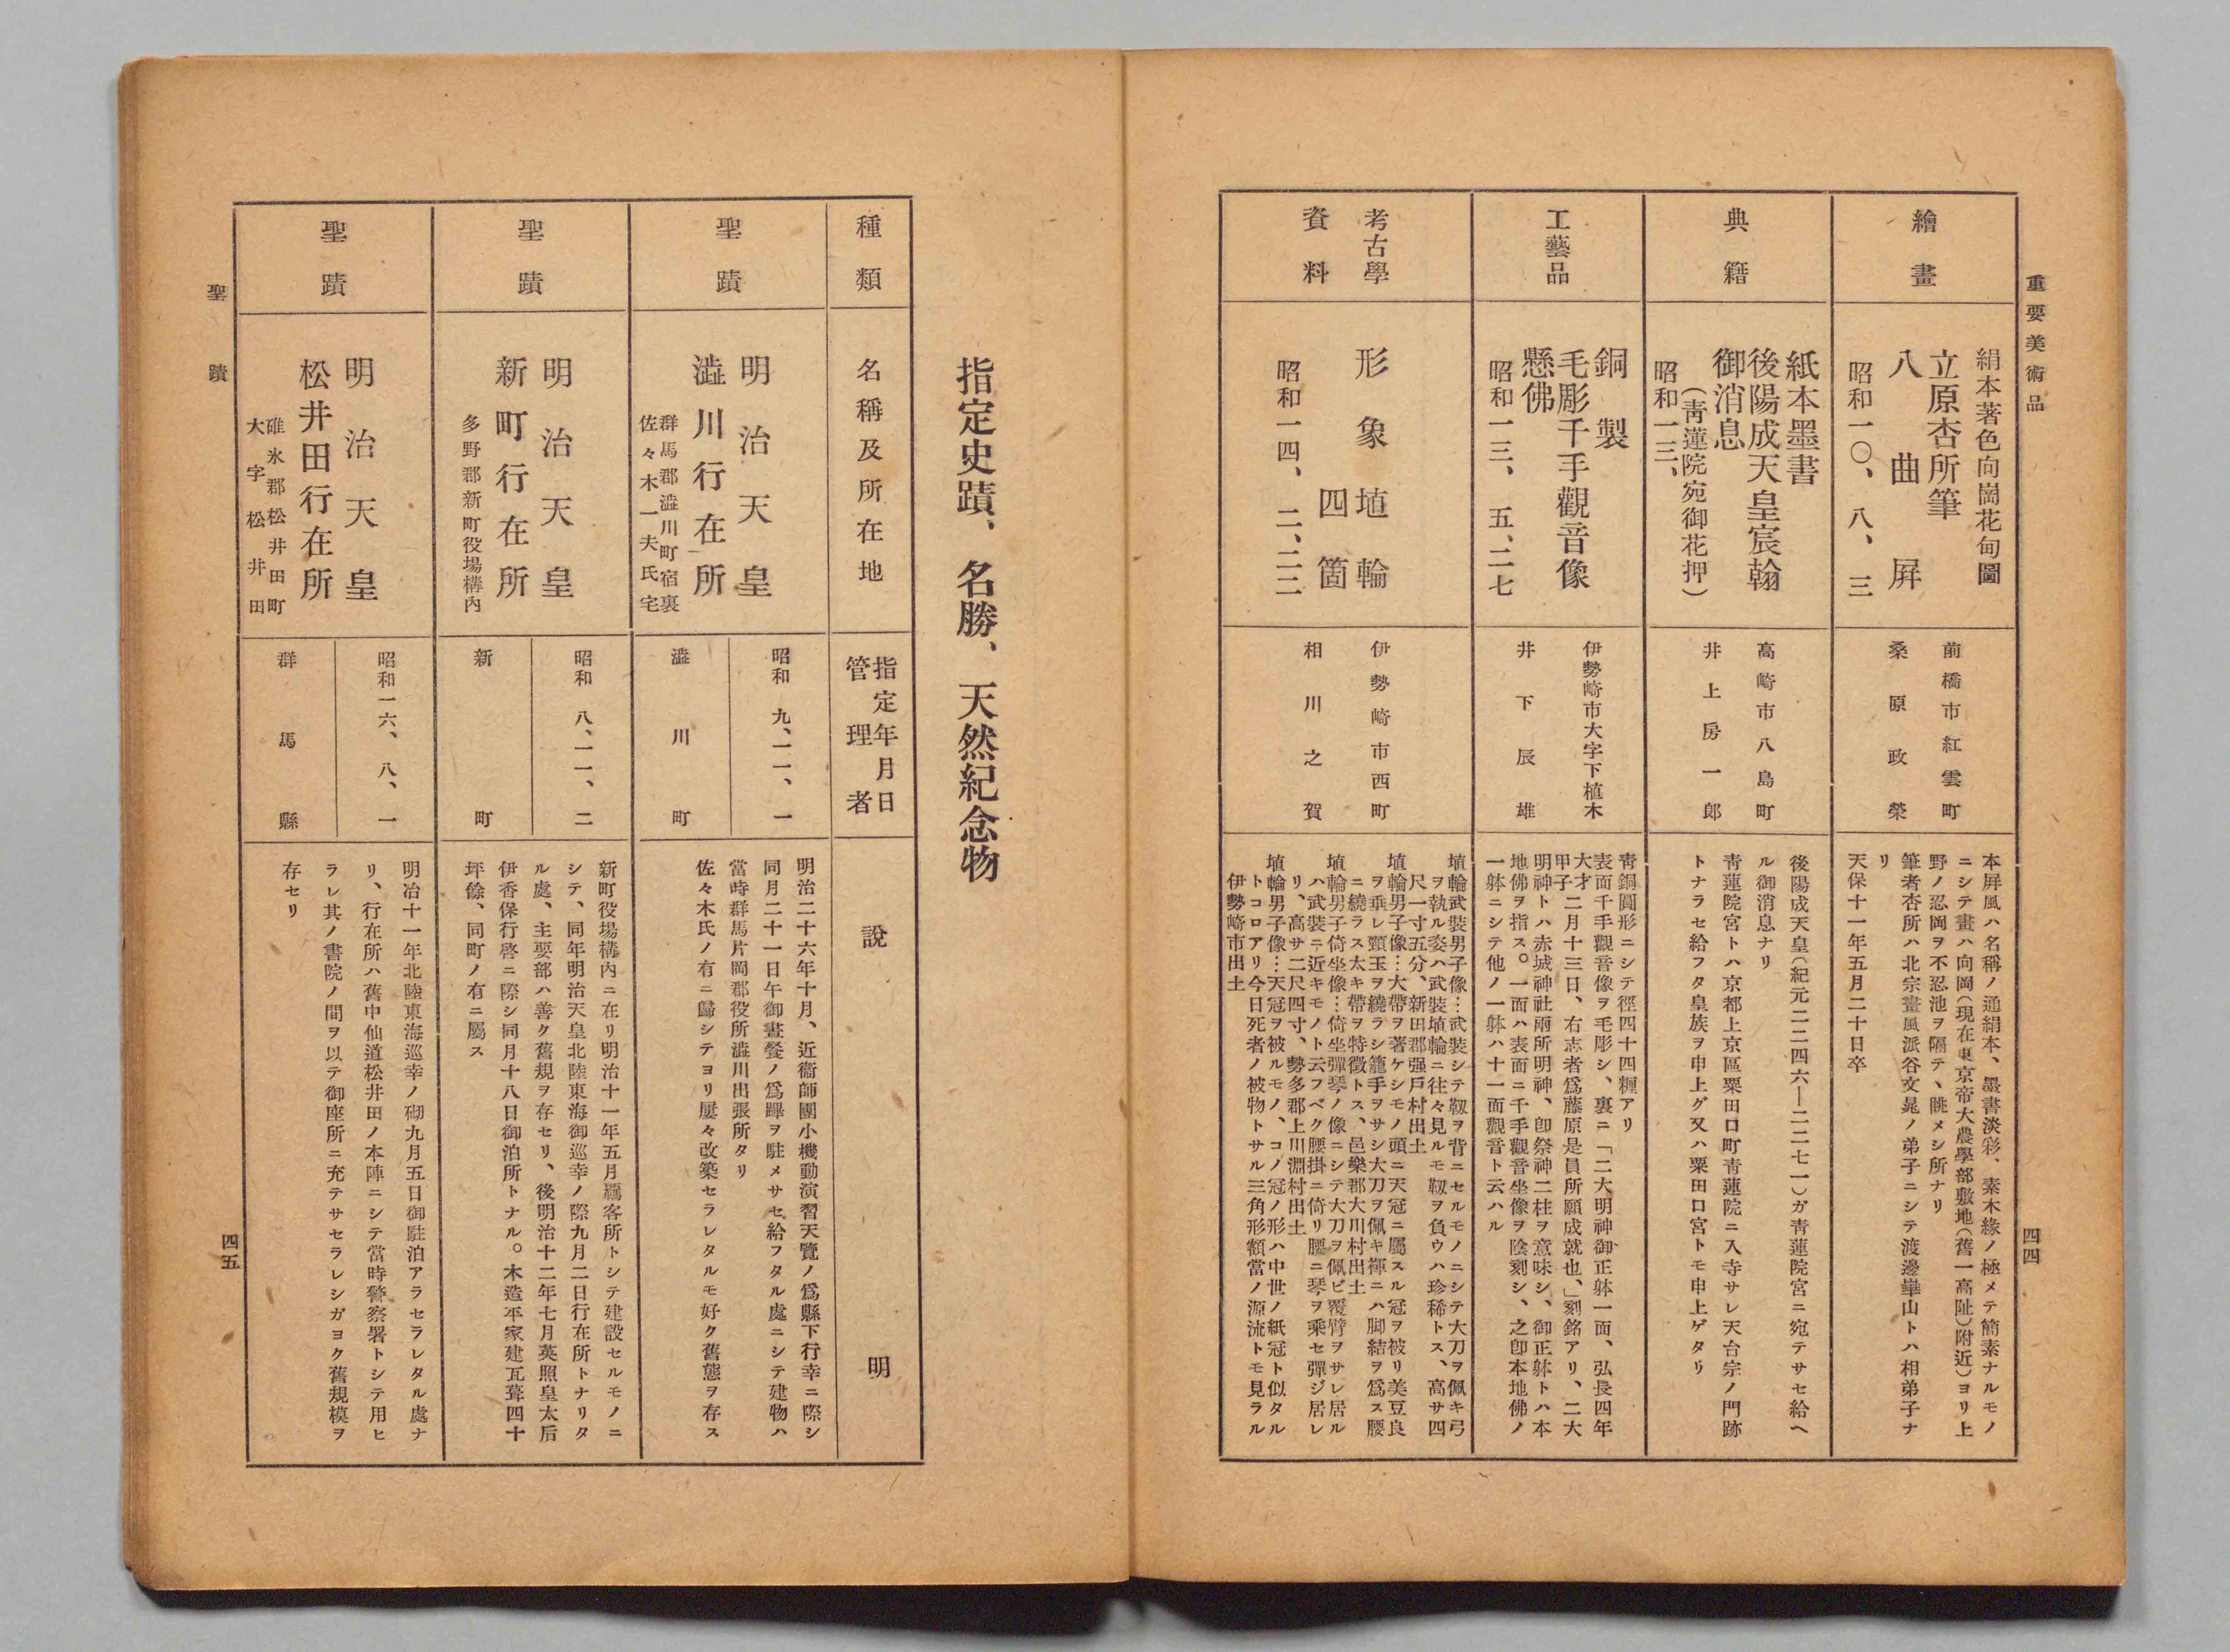 重要美術品
四四
繪畫
絹本著色向崗花旬圖
立原杏所筆
八曲屛
昭和一〇、八、三
前橋市紅雲町
桑原政榮
本屛風ハ名稱ノ通絹本、墨書淡彩、素木緣ノ極メテ簡素ナルモノ
ニシテ畫ハ向岡(現在東京帝大農學部敷地(舊一高阯)附近)ヨリ上
野ノ忍岡ヲ不忍池ヲ隔テ、眺メシ所ナリ
筆者杏所ハ北宗畫風派谷文晁ノ弟子ニシテ渡邊崋山トハ相弟子ナ
リ
天保十一年五月二十日卒
典籍
紙本墨書
後陽成天皇宸翰
御消息
(靑蓮院宛御花押)
昭和一三、
高崎市八島町
井上房一郎
後陽成天皇(紀元二二四六―二二七一)ガ靑蓮院宮ニ宛テサセ給ヘ
ル御消息ナリ
靑蓮院宮トハ京都上京區粟田口町靑蓮院ニ入寺サレ天台宗ノ門跡
トナラセ給フタ皇族ヲ申上グ又ハ粟田口宮トモ申上ゲタリ
工藝品
銅製
毛彫千手觀音像
懸佛
昭和一三、五、二七
伊勢崎市大字下植木
井下辰雄
靑銅圓形ニシテ徑四十四糎アリ
表面千手觀音像ヲ毛彫シ、裏ニ「二大明神御正躰一面、弘長四年
大才甲子二月十三日、右志者爲藤原是員所願成就也、」刻銘アリ、二大
明神トハ赤城神社兩所明神、卽祭神二柱ヲ意味シ、御正躰トハ本
地佛ヲ指ス。一面ハ表面ニ千手觀音坐像ヲ陰刻シ、之卽本地佛ノ
一躰ニシテ他ノ一躰ハ十一面觀音ト云ハル
考古學
資料
形象埴輪
四箇
昭和一四、二、二二
伊勢崎市西町
相川之賀
埴輪武裝男子像…武裝シテ靱ヲ背ニセルモノニシテ大刀ヲ佩キ弓
ヲ執ル姿ハ武裝埴輪ニ往々見ルモ靱ヲ負ウハ珍稀トス、高サ四
尺一寸五分、新田郡强戶村出土
埴輪男子像…大帶ヲ著ケシモノ頭ニ天冠ニ屬スル冠ヲ被リ美豆良
ヲ垂レ頸玉ヲ繞ラシ籠手ヲサシ大刀ヲ佩キ褌ニハ脚結ヲ爲ス腰
ニ繞ラス太キ帶ヲ特徵トス、邑樂郡大川村出土
埴輪男子倚坐像…倚坐彈琴ノ像ニシテ大刀ヲ佩ビ覆臂ヲサレ居ル
ハ武裝ニ近キモノト云フベク腰掛ニ倚リ腰ニ琴ヲ乘セ彈ジ居レ
リ、高サ二尺四寸、勢多郡上川淵村出土
埴輪男子像…天冠ヲ被ルモノ、コノ冠ノ形ハ中世ノ紙冠ト似タル
トコロアリ今日死者ノ被物トサル三角形額當ノ源流トモ見ラル
伊勢崎市出土
指定史蹟、名勝、天然紀念物
種類
名稱及所在地
指定年月日
管理者
說明
聖蹟
明治天皇
澁川行在所
群馬郡澁川町宿裏
佐々木一夫氏宅
昭和九、一一、一
澁川町
明治二十六年十月、近衞師團小機動演習天覽ノ爲縣下行幸ニ際シ
同月二十一日午御晝餐ノ爲蹕ヲ駐メサセ給フタル處ニシテ建物ハ
當時群馬片岡郡役所澁川出張所タリ
佐々木氏ノ有ニ歸シテヨリ屢々改築セラレタルモ好ク舊態ヲ存ス
聖蹟
明治天皇
新町行在所
多野郡新町役場構內
昭和八、一一、二
新町
新町役場構內ニ在リ明治十一年五月覊客所トシテ建設セルモノニ
シテ、同年明治天皇北陸東海御巡幸ノ際九月二日行在所トナリタ
ル處、主要部ハ善ク舊規ヲ存セリ、後明治十二年七月英照皇太后
伊香保行啓ニ際シ同月十八日御泊所トナル。木造平家建瓦葺四十
坪餘、同町ノ有ニ屬ス
聖蹟
明治天皇
松井田行在所
碓氷郡松井田町
大字松井田
昭和一六、八、一
群馬縣
明治十一年北陸東海巡幸ノ砌九月五日御駐泊アラセラレタル處ナ
リ、行在所ハ舊中仙道松井田ノ本陣ニシテ當時警察署トシテ用ヒ
ラレ其ノ書院ノ間ヲ以テ御座所ニ充テサセラレシガヨク舊規模ヲ
存セリ
聖蹟
四五